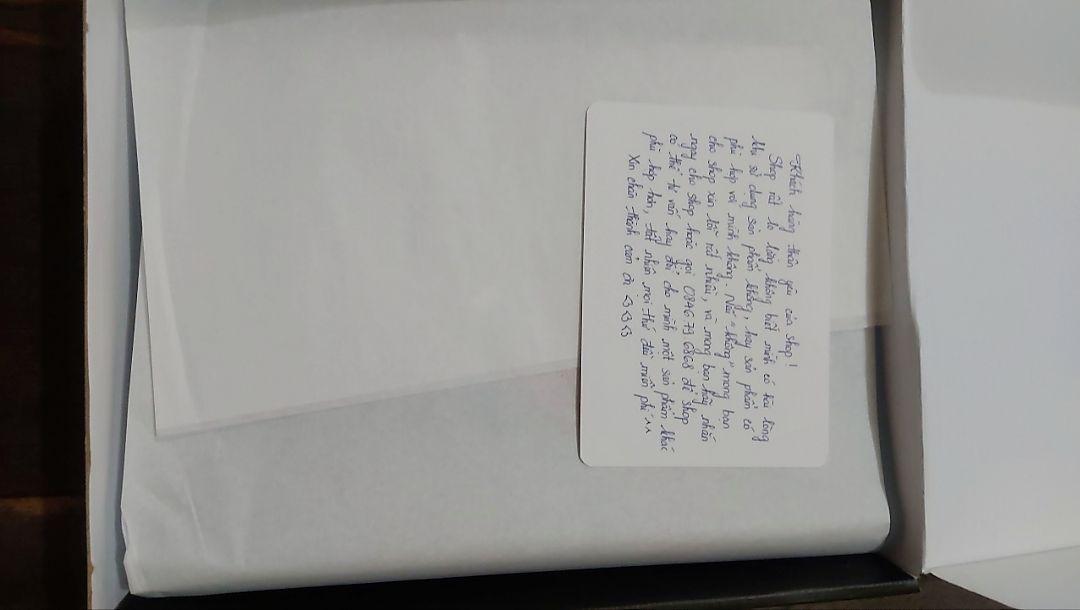 Khách hàng thân yêu của shop!
Shop rất lo lắng không biết mình có hài lòng
khi sử dụng sản phẩm không, hay sản phẩm có
phù hợp với mình không. Nếu "không" mong bạn
cho shop xin lỗi rất nhiều, và mong bạn hãy nhắn
ngay cho shop hoặc gọi 0846 79 6868 để shop
có thể tư vấn hay đổi cho mình một sản phẩm khác
phù hợp hơn, tất nhiên mọi thứ đều miễn phí ^^
Xin chân thành cảm ơn <3<3<3